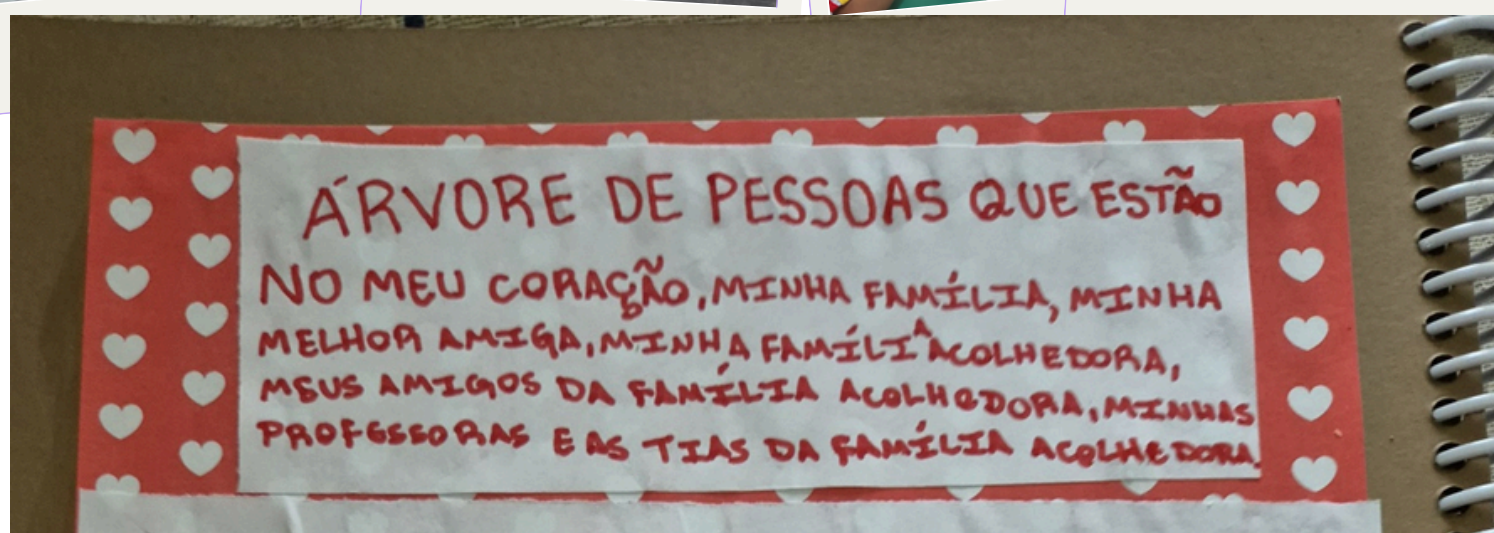 ÁRVORE DE PESSOAS QUE ESTÃO
NO MEU CORAÇÃO, MINHA FAMÍLIA, MINHA
MELHOR AMIGA, MINHA FAMÍLIA ACOLHEDORA,
MEUS AMIGOS DA FAMÍLIA ACOLHEDORA, MINHAS
PROFESSORAS E AS TIAS DA FAMÍLIA ACOLHEDORA.